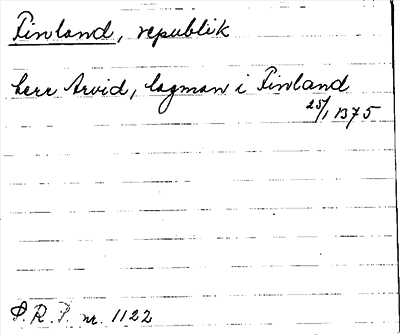 Finland, republik
herr Arvid, lagman i Finland
25/1 1375
P. R. P. nr. 1122